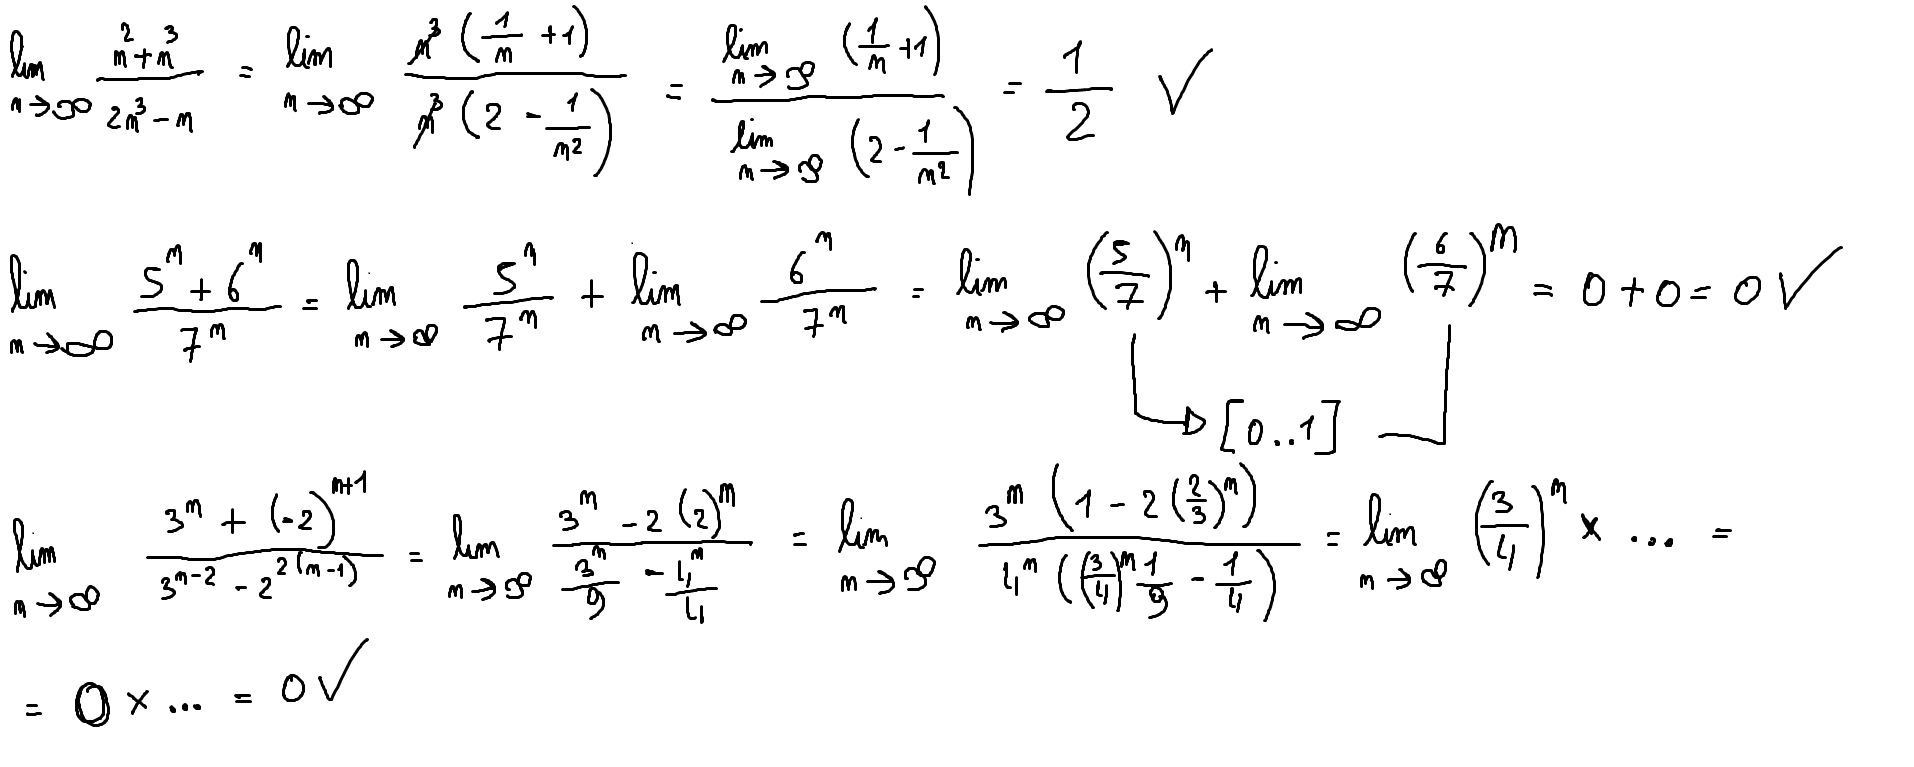 lim n→∞ (n² + n³)/(2n³ − n) = lim n→∞ n³(1/n + 1)/n³(2 − 1/n²) = lim n→∞ (1/n + 1)/lim n→∞ (2 − 1/n²) = 1/2 ✓
lim n→∞ (5ⁿ + 6ⁿ)/7ⁿ = lim n→∞ 5ⁿ/7ⁿ + lim n→∞ 6ⁿ/7ⁿ = lim n→∞ (5/7)ⁿ + lim n→∞ (6/7)ⁿ = 0 + 0 = 0 ✓
[0..1]
lim n→∞ (3ⁿ + (-2)ⁿ⁺¹)/(3ⁿ⁻² − 2²⁽ⁿ⁻¹⁾) = lim n→∞ (3ⁿ − 2(2)ⁿ)/(3ⁿ/9 − 4ⁿ/4) = lim n→∞ 3ⁿ(1 − 2(2/3)ⁿ)/4ⁿ((3/4)ⁿ 1/9 − 1/4) = lim n→∞ (3/4)ⁿ × ... =
= 0 × ... = 0 ✓